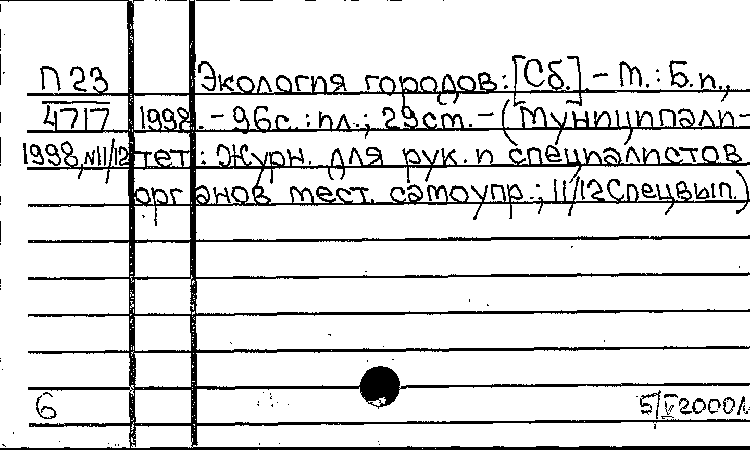 П 23 Экология городов: [Сб.]. - М.: Б.и.,
4717 1998. - 96с.: ил.; 29см. - (Муниципали-
1998, №11/12 тет: Журн. для рук. и специалистов
орг анов мест. самоупр.; 11/12 Спецвып.)
6 5/V 2000